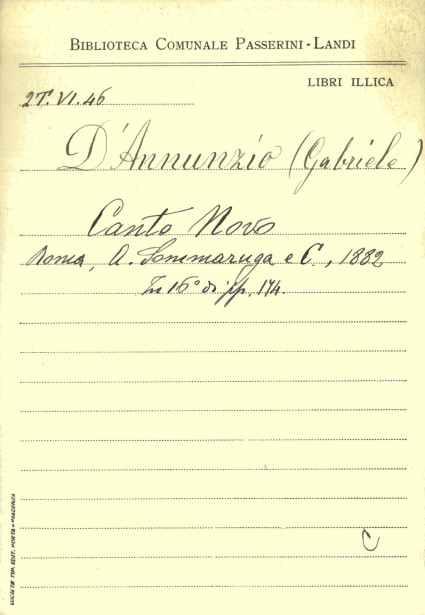 BIBLIOTECA COMUNALE PASSERINI-LANDI
LIBRI ILLICA
2T.VI.46
D'Annunzio (Gabriele)
Canto Novo
Roma, A. Sommaruga e C., 1882
In 16° di pp. 174.
C
SOCIETÀ TIP. EDIT. PORTA - PIACENZA